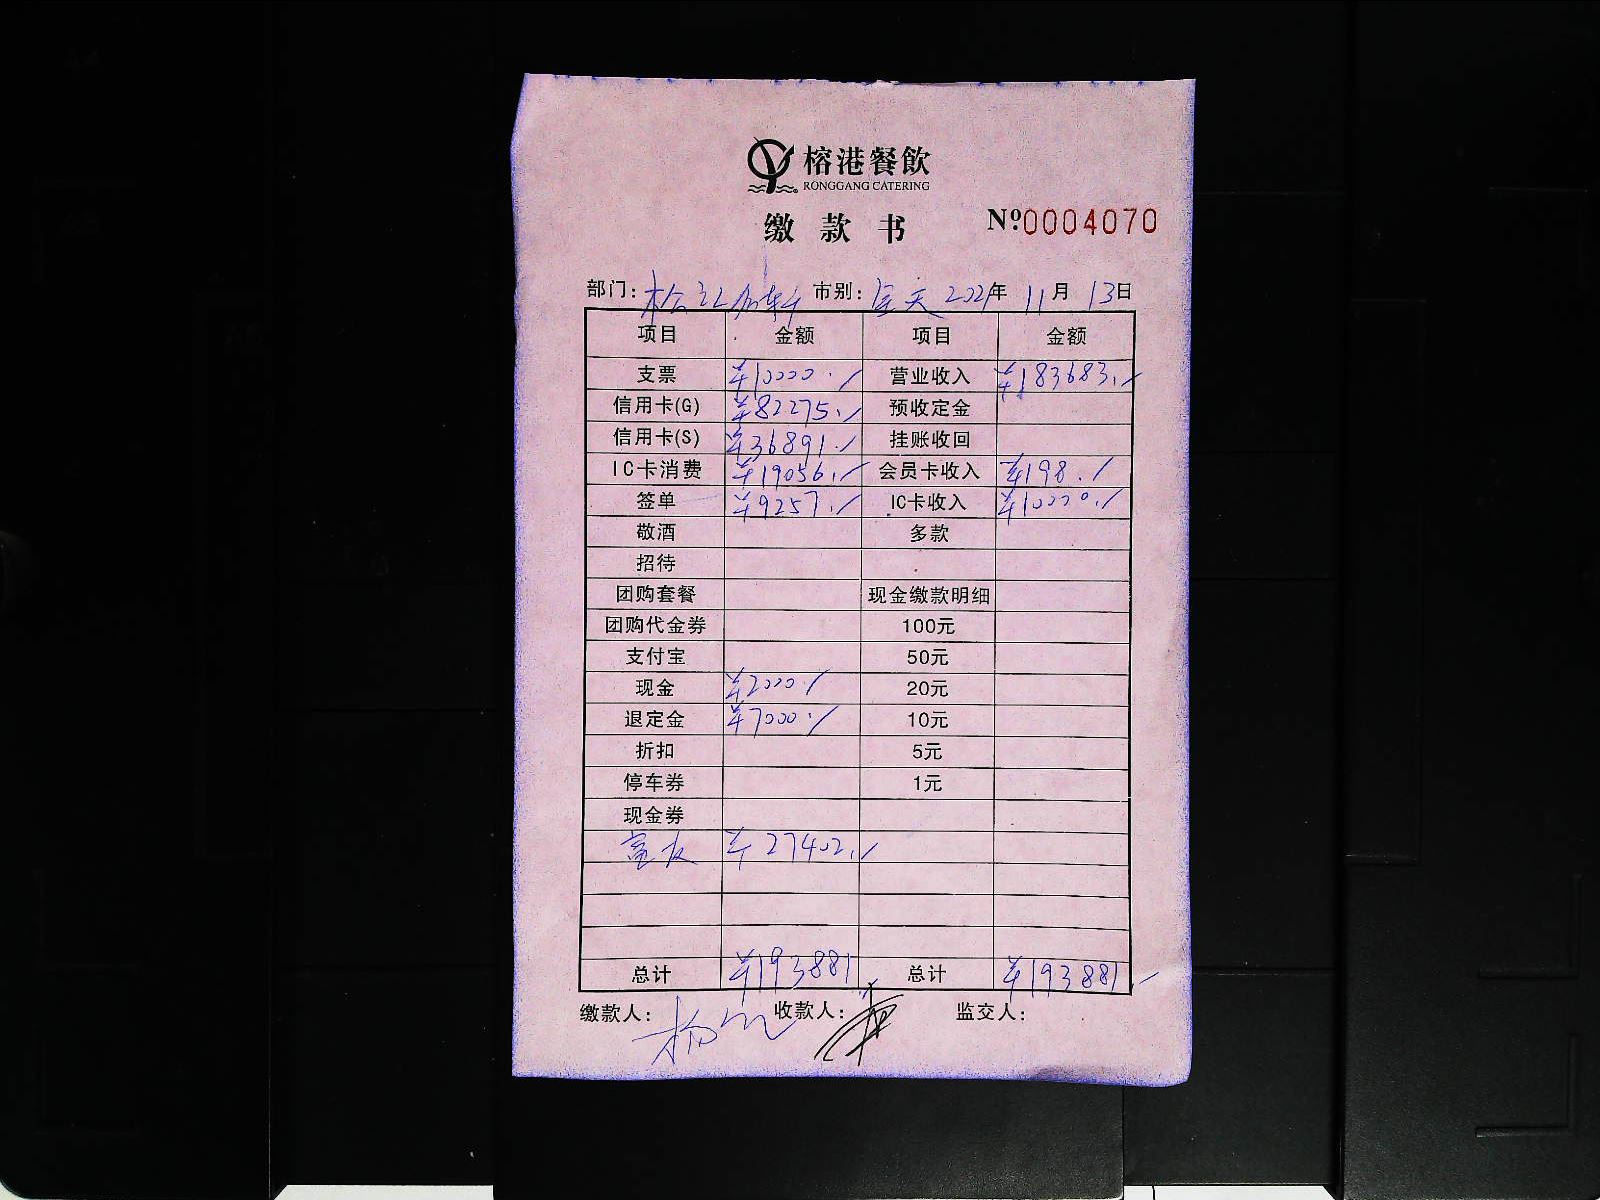 榕港餐飲
RONGGANG CATERING
缴款书
Nº0004070
部门: 松江名轩 市别: 全天 2021年 11月 13日
项目 金额 项目 金额
支票 ¥10000.- 营业收入 ¥183683.-
信用卡(G) ¥82275.- 预收定金
信用卡(S) ¥36891.- 挂账收回
IC卡消费 ¥19056.- 会员卡收入 ¥198.-
签单 ¥9257.- IC卡收入 ¥10000.-
敬酒 多款
招待
团购套餐 现金缴款明细
团购代金券 100元
支付宝 50元
现金 ¥2000.- 20元
退定金 ¥7000.- 10元
折扣 5元
停车券 1元
现金券
富友 ¥27402.-
总计 ¥193881.- 总计 ¥193881.-
缴款人: 收款人: 监交人: